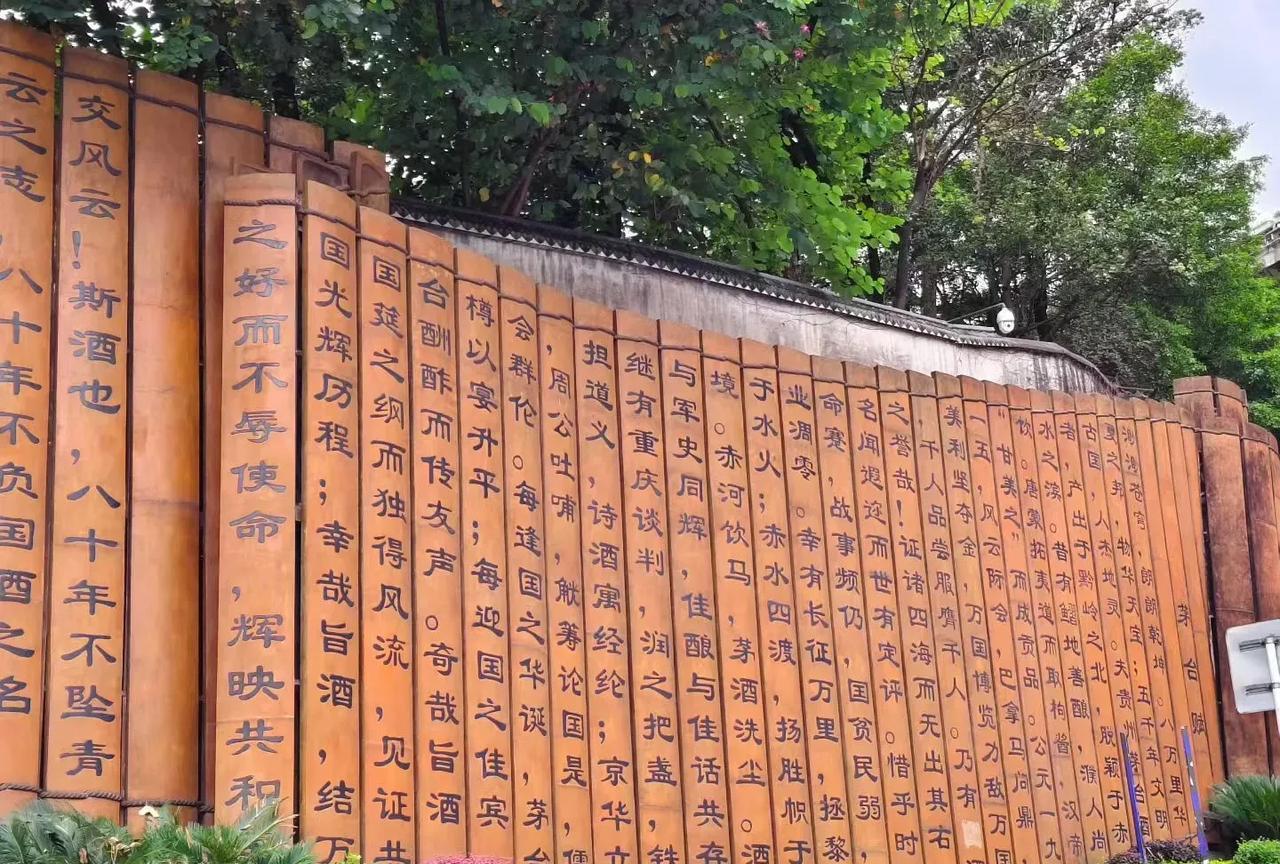 茅台赋
苍穹，朗朗乾坤。八万里华
夏之邦，物华天宝；五千年文明
古国，人杰地灵。夫贵州茅台
者，产出于黔岭之北，脱颖于赤
水之滨。昔有鳛地善酿，濮人尚
饮。唐蒙拓夷道而取枸酱，汉帝
“甘美之”而成贡品。公元一九
一五，风云际会，巴拿马问鼎
美利坚夺金，万国博览力敌万国
，千人品尝服膺千人。乃有酒
之誉哉！证诸四海而无出其右
名闻遐迩而世有定评。惜乎时
命蹇，战事频仍，国贫民弱，
业凋零。幸有长征万里，拯黎
于水火；赤水四渡，扬胜帜于
境。赤河饮马，茅酒洗尘。酒
与军史同辉，佳酿与佳话共存
继有重庆谈判，润之把盏，铁
担道义，诗酒寓经纶；京华立
，周公吐哺，觥筹论国是，儒
会群伦。每逢国之华诞，茅台
樽以宴升平；每迎国之佳宾
台酬酢而传友声。奇哉旨酒
国筵之纲而独得风流，见证共
国光辉历程；幸哉旨酒，结万
之好而不辱使命，辉映共和
交风云！斯酒也，八十年不坠青
云之志，八十年不负国酒之名